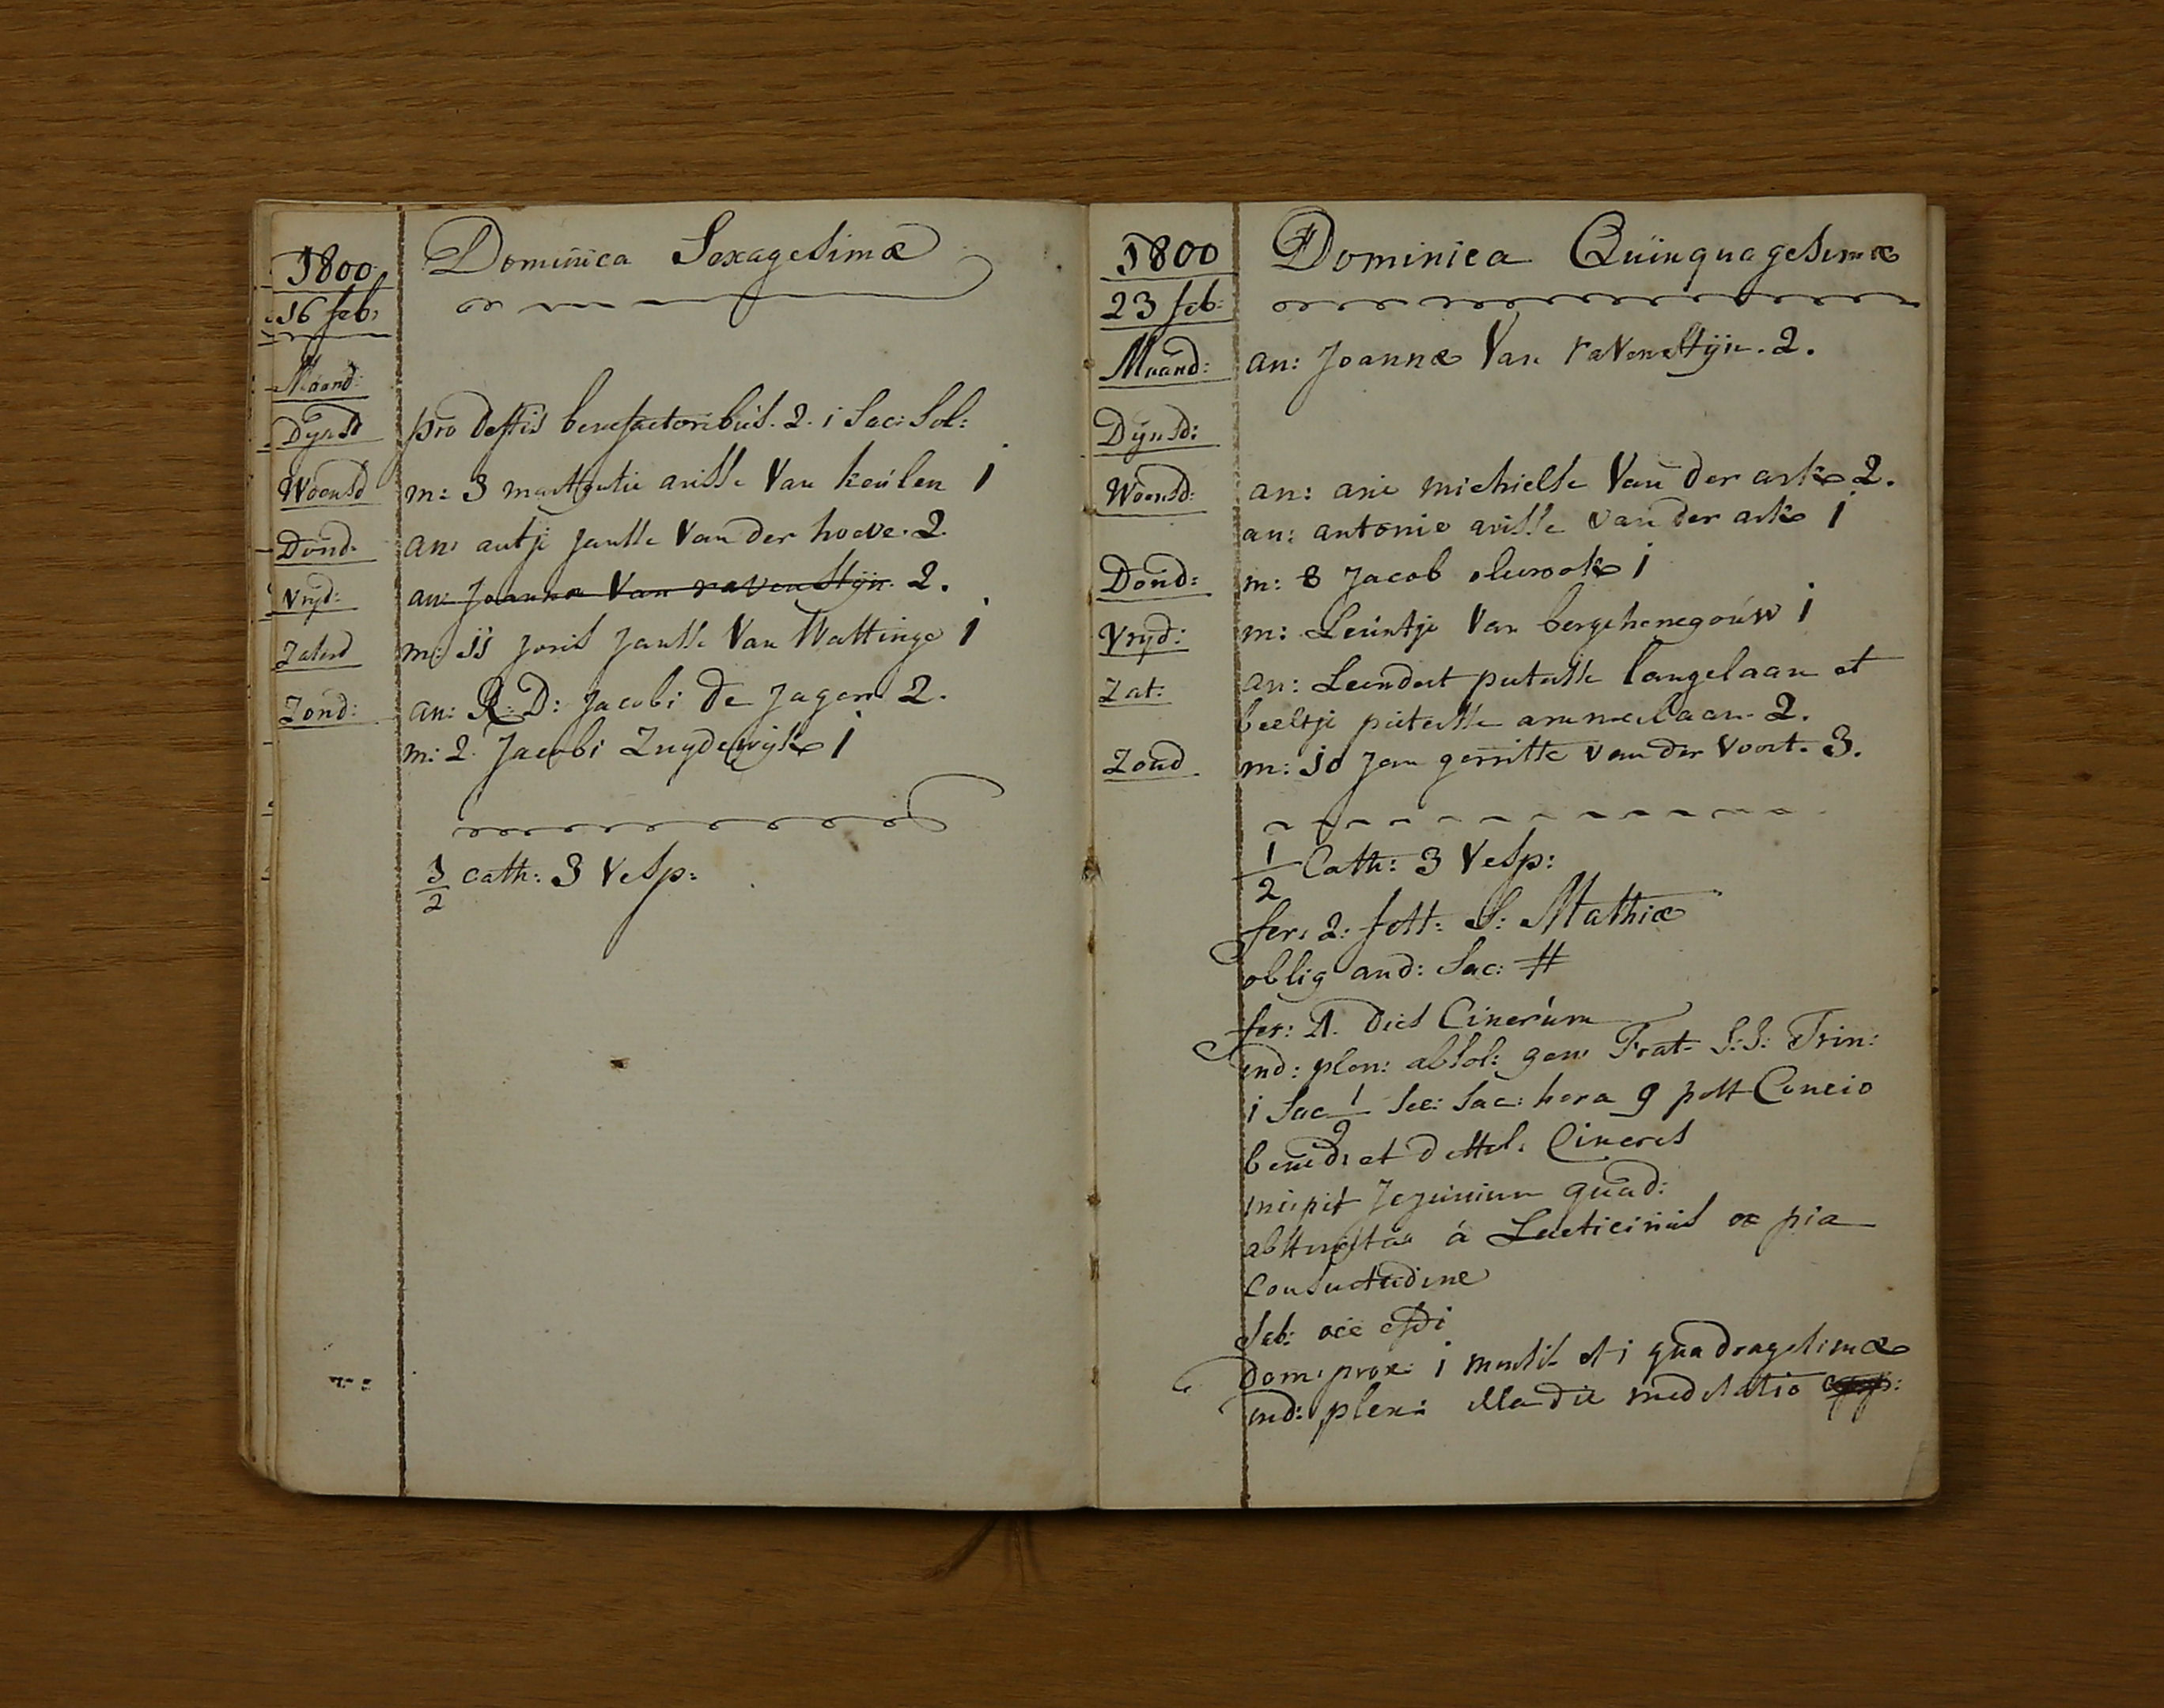 1800
16 feb:
Dominica Sexagesimæ
Maand:
Dynsd pro deftis benefactoribus. 2. i Sac: Sol:
Woensd m: 3 martijntie arisse Van keulen 1
Dond: an: antje Jansse Van der hoeve. 2.
Vryd: an: Joannæ Van ravenstijn. 2.
Zaterd m: 11 Joris Jansse Van Wattinge 1
Zond: an: R: D: Jacobi De Jager 2.
m: 2. Jacobi Zuydewijk 1
3/2 cath: 3 Vesp:
1800
23 feb:
Dominica Quinquagesimæ
Maand: an: Joannæ Van ravenstijn. 2.
Dynsd:
Woensd: an: arie michielse Van der ark 2.
an: antonie arisse van der ark 1
Dond: m: 8 Jacob 1
Vryd: m: Leuntje Van bergehenegouw 1
Zat: an: Leendert pieterse langelaan et
beeltje pieterse ammerlaan 2.
Zond m: 10 Jan gerritse van der Voort. 3.
1/2 Cath: 3 Vesp:
fer: 2: fest: S: Mathiæ
oblig aud: Sac: #
fer: 4. dies Cinerum
ind: plen: absol: gen: Frat: S:S: Trin:
i Sac 1/2 Sec: Sac: hora 9 post Concio
bened: et distrib: Cineres
incipit Jejunium quad:
abstinetur á Lacticiniis ex pia
Consuetudine
Sab:
Dom: prox: i mensis et i quadragesimæ
ind: plen: illa die meditatio